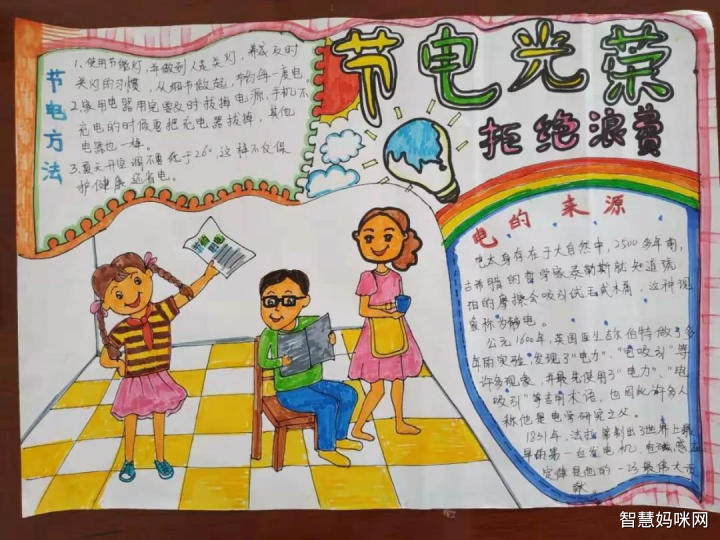 节电光荣
拒绝浪费
节电方法
1、使用节能灯,并做到人走关灯,养成及时
关灯的习惯,从细节做起,节约每一度电。
2、家用电器用完要及时拔掉电源,手机不
充电的时候要把充电器拔掉,其他
电器也一样。
3、夏天开空调不要低于26°,这样不仅保
护健康还省电。
节约用电
电的来源
电本身存在于大自然中,2500多年前,
古希腊的哲学家泰勒斯就知道琥
珀的摩擦会吸引绒毛或木屑,这种现
象称为静电。
公元1600年,英国医生吉尔伯特做了多
年的实验,发现了“电力”,“电吸引”等
许多现象,并最先使用了“电力”、“电
吸引”等专用术语,也因此许多人
称他是电学研究之父。
1831年,法拉第制出了世界上最
早的第一台发电机,电磁感应
定律是他的一项最伟大贡
献
智慧妈咪网